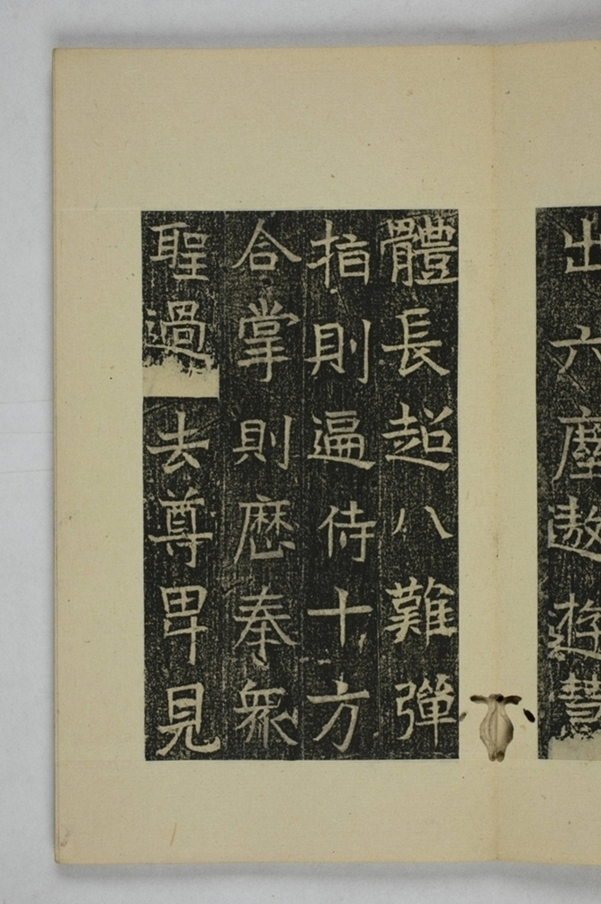 出六塵遨遊慧
體長超八難彈
指則遍侍十方
合掌則歷奉衆
聖過去尊卑見